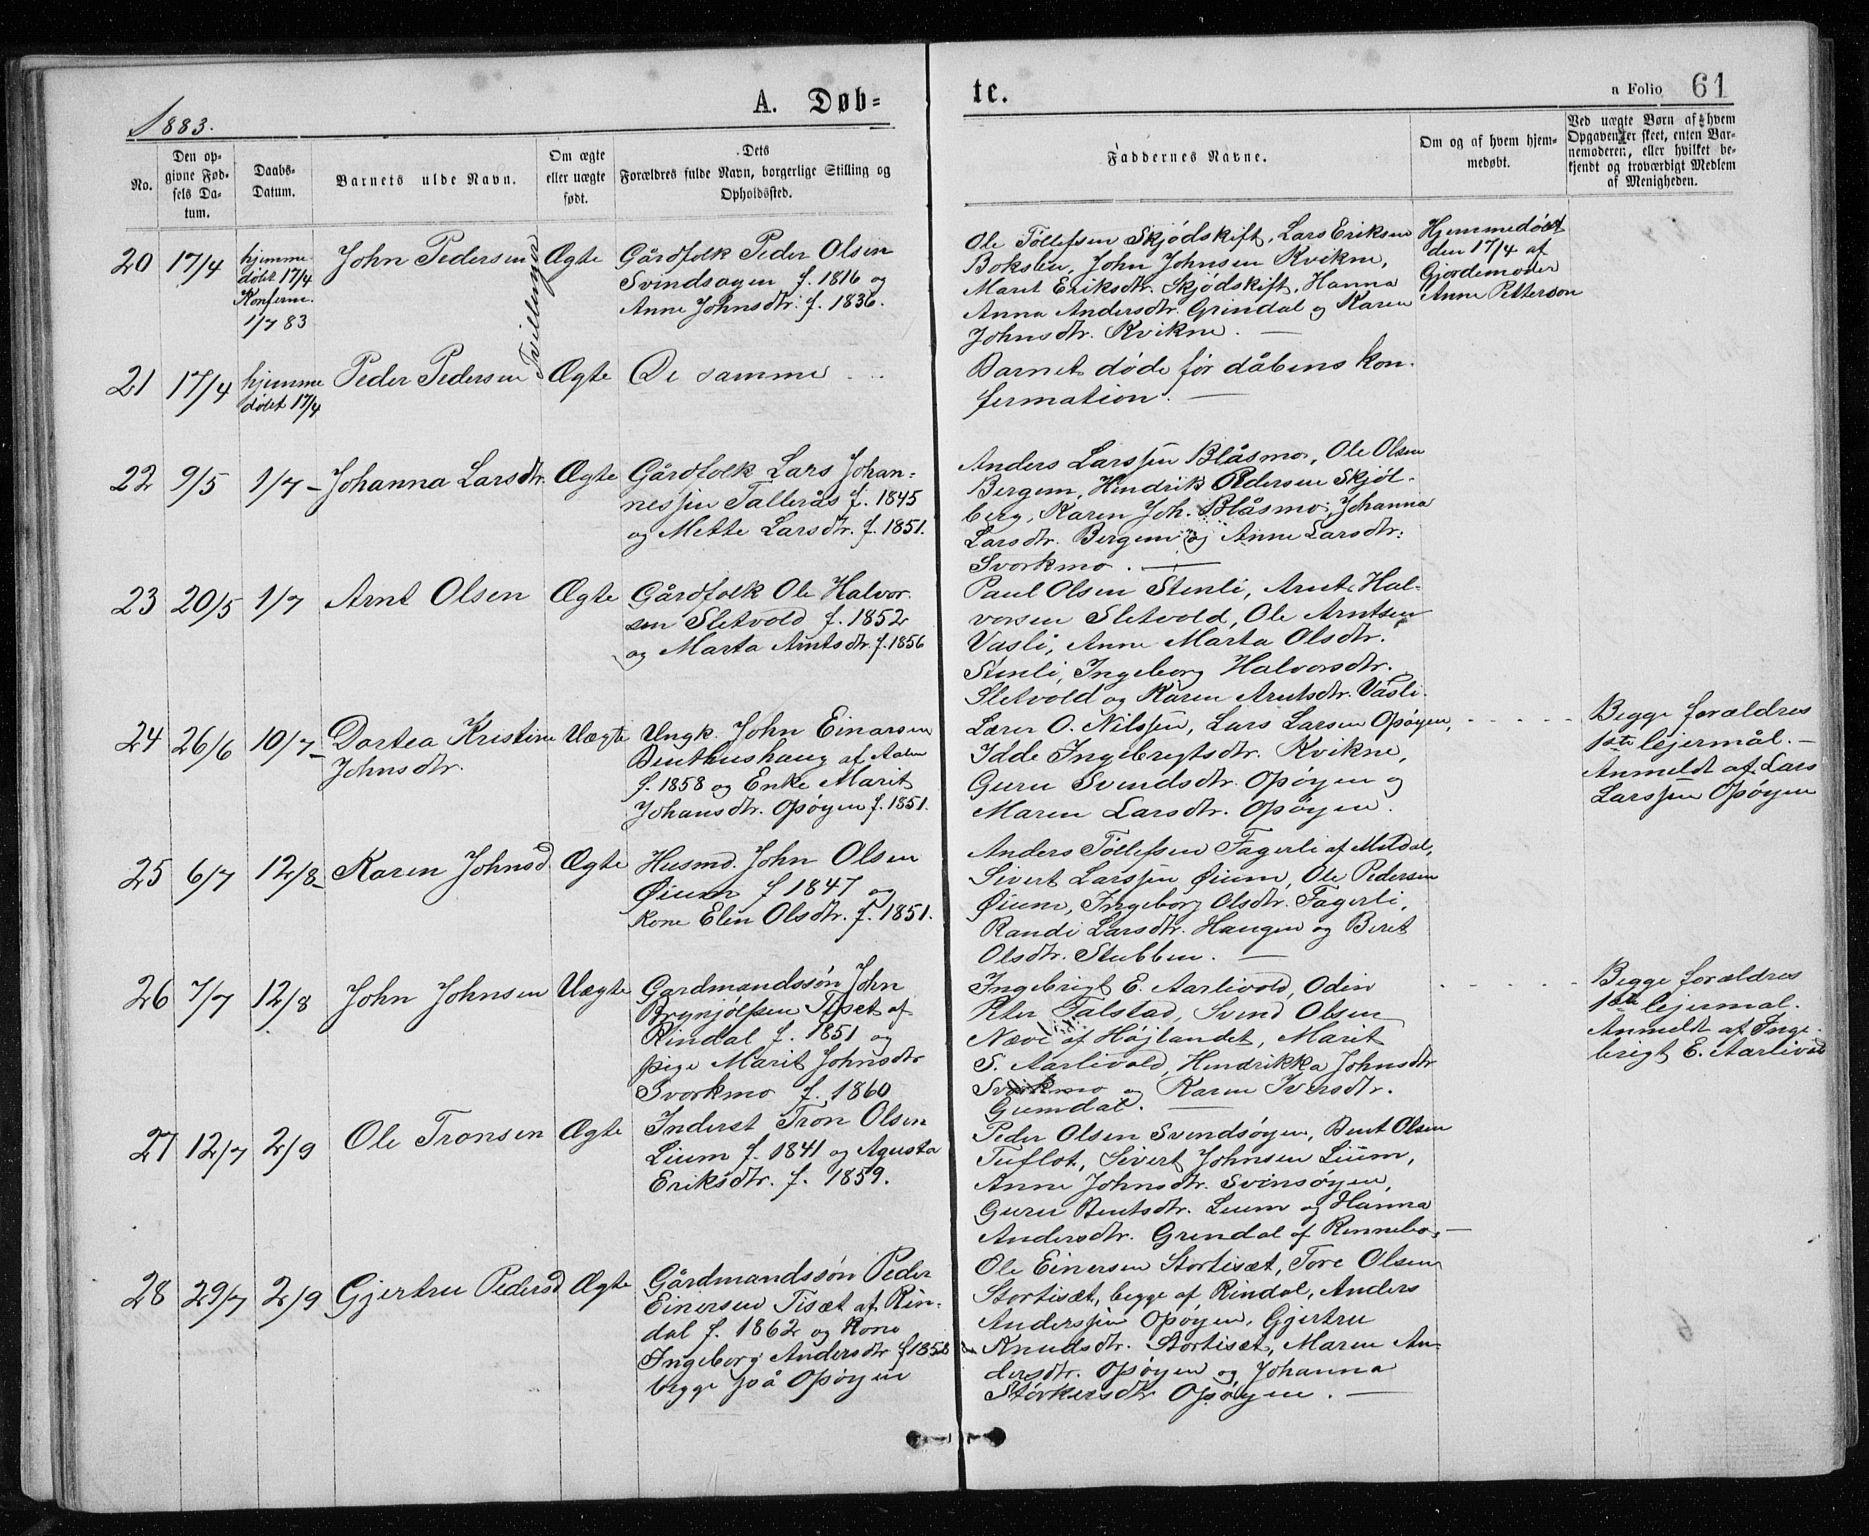 1883.
A. Døb=
te.
a Folio 61
No.
Den op-
givne Fød-
sels Da-
tum.
Daabs-
Datum.
Barnets ulde Navn.
Om ægte
eller uægte
født.
Dets
Forældres fulde Navn, borgerlige Stilling og
Opholdssted.
Faddernes Navne.
Om og af hvem hjem-
medøbt.
Ved uægte Børn af hvem
Opgaven er skeet, enten Bar-
nemoderen, eller hvilket be-
kjendt og troværdigt Medlem
af Menigheden.
20 17/4
hjemme
døbt 17/4
Konferm.
1/7 83
John Pedersen
Tvillinger
Ægte
Gårdfolk Peder Olsen
Svindsøgen f. 1816 og
Anne Johnsdtr. f. 1836.
Ole Tøllefsen Skjødskift, Lars Eriksen
Bokslen, John Johnsen Kvikne,
Marit Eriksdtr. Skjødskift, Hanna
Anna Andersdtr. Grindal og Karen
Johnsdtr. Kvikne. —
Hjemmedøbt
den 17/4 af
Gjordemoder
Anne Petterson
21 17/4
hjemme
døbt 17/4
Peder Pedersen
Ægte
De samme
Barnet døde før dåbens kon-
fermation. —
22 9/5 1/7 – Johanna Larsdtr. Ægte
Gårdfolk Lars Johan-
nessen Tallerås f. 1845
og Mette Larsdtr. f. 1851.
Anders Larssen Blåsmo, Ole Olsen
Bergem, Hindrik Pedersen Skjøl-
berg, Karen Joh. Blåsmo, Johanna
Larsdtr. Bergem og Anne Larsdtr.
Svorkmo. —
23 20/5 1/7 Arnt Olsen Ægte
Gårdfolk Ole Halvor-
sen Sletvold f. 1852
og Marta Arntsdtr. f. 1856
Paul Olsen Stenli, Arnt Hal-
vorsen Sletvold, Ole Arntsen
Vasli, Anne Marta Olsdtr.
Stenli, Ingeborg Halvorsdtr.
Sletvold og Karen Arntsdtr. Vasli.
24 26/6 10/7 – Dortea Kristine
Johnsdtr.
Uægte
Ungk. John Einarsen
Benthushaug af Aalen
f. 1858 og Enke Marit
Johansdtr. Opøyen f. 1851.
Lærer O. Nilssen, Lars Larsen Opøyen,
Idde Ingebrigtsdtr. Kvikne,
Guru Svendsdtr. Opøyen og
Maren Larsdtr. Opøyen.
Begge forældres
1ste lejermål. —
Anmeldt af Lars
Larssen Opøyen
25 6/7 12/8 – Karen Johnsd. Ægte
Husmd. John Olsen
Øium f. 1847 og
Kone Elen Olsdtr. f. 1851.
Anders Tøllefsen Fagerli af Meldal,
Sivert Larssen Øium, Ole Pedersen
Øium, Ingeborg Olsdtr. Fagerli,
Randi Larsdtr. Haugen og Beret
Olsdtr. Stubben. —
26 7/7 12/8 John Johnsen Uægte
Gardmandssøn John
Brynjølfsen Tiset af
Rindal f. 1851 og
pige Marit Johnsdtr
Svorkmo f. 1860
Ingebrigt E. Aarlivold, Odin
Peter Falstad, Svend Olsen
Næve af Højlandet, Marit
S. Aarlivold, Hendrikka Johnsdtr
Svorkmo og Karen Iversdtr.
Gumdal. —
Begge forældres
1ste lejermål.
Anmeldt af Inge-
brigt E. Aarlivold
27 12/7 2/9 Ole Tronsen Ægte
Inderst Tron Olsen
Lium f. 1841 og Agusta
Eriksdtr. f. 1859.
Peder Olsen Svendsøyen, Bent Olsen
Tuflot, Sivert Johnsen Lium,
Anne Johnsdtr. Svinsøyen,
Guru Bentsdtr. Lium og Hanna
Andersdtr. Grendal af Rennebo. —
28 29/7 2/9 Gjertru Pedersd Ægte
Gårdmandssøn Peder
Einersen Tisæt af Rin-
dal f. 1862 og Kone
Ingeborg Andersdtr f 1858
begge på Opøyen
Ole Einersen Stortisæt, Tore Olsen
Stortisæt, begge af Rindal, Anders
Anderssen Opøyen, Gjertru
Knudsdtr. Stortisæt, Maren An-
dersdtr. Opøyen og Johanna
Størkersdtr Opøyen. —